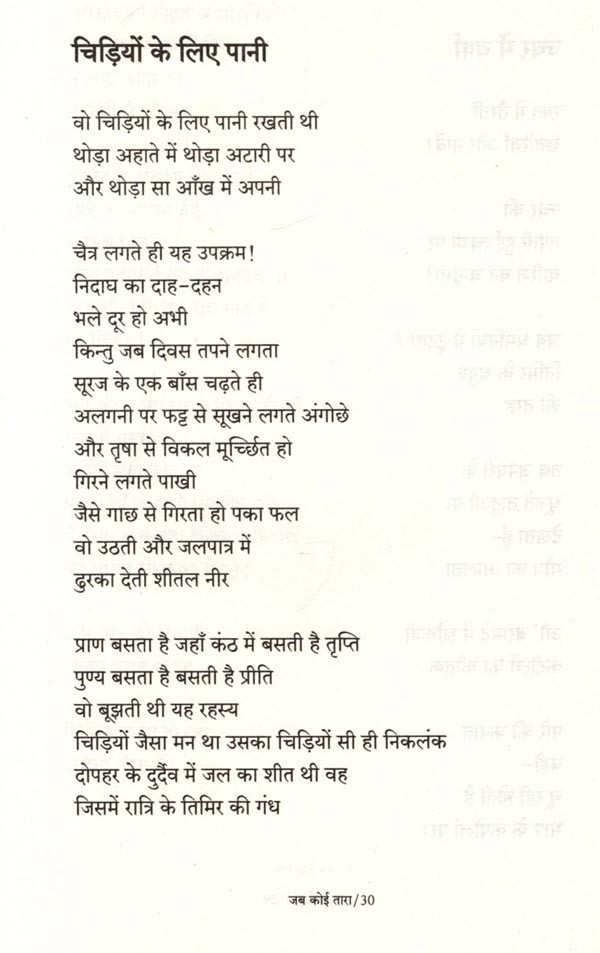 चिड़ियों के लिए पानी
वो चिड़ियों के लिए पानी रखती थी
थोड़ा अहाते में थोड़ा अटारी पर
और थोड़ा सा आँख में अपनी
चैत्र लगते ही यह उपक्रम!
निदाघ का दाह-दहन
भले दूर हो अभी
किन्तु जब दिवस तपने लगता
सूरज के एक बाँस चढ़ते ही
अलगनी पर फट्ट से सूखने लगते अंगोछे
और तृषा से विकल मूर्च्छित हो
गिरने लगते पाखी
जैसे गाछ से गिरता हो पका फल
वो उठती और जलपात्र में
ढुरका देती शीतल नीर
प्राण बसता है जहाँ कंठ में बसती है तृप्ति
पुण्य बसता है बसती है प्रीति
वो बूझती थी यह रहस्य
चिड़ियों जैसा मन था उसका चिड़ियों सी ही निकलंक
दोपहर के दुर्दैव में जल का शीत थी वह
जिसमें रात्रि के तिमिर की गंध
जब कोई तारा/30